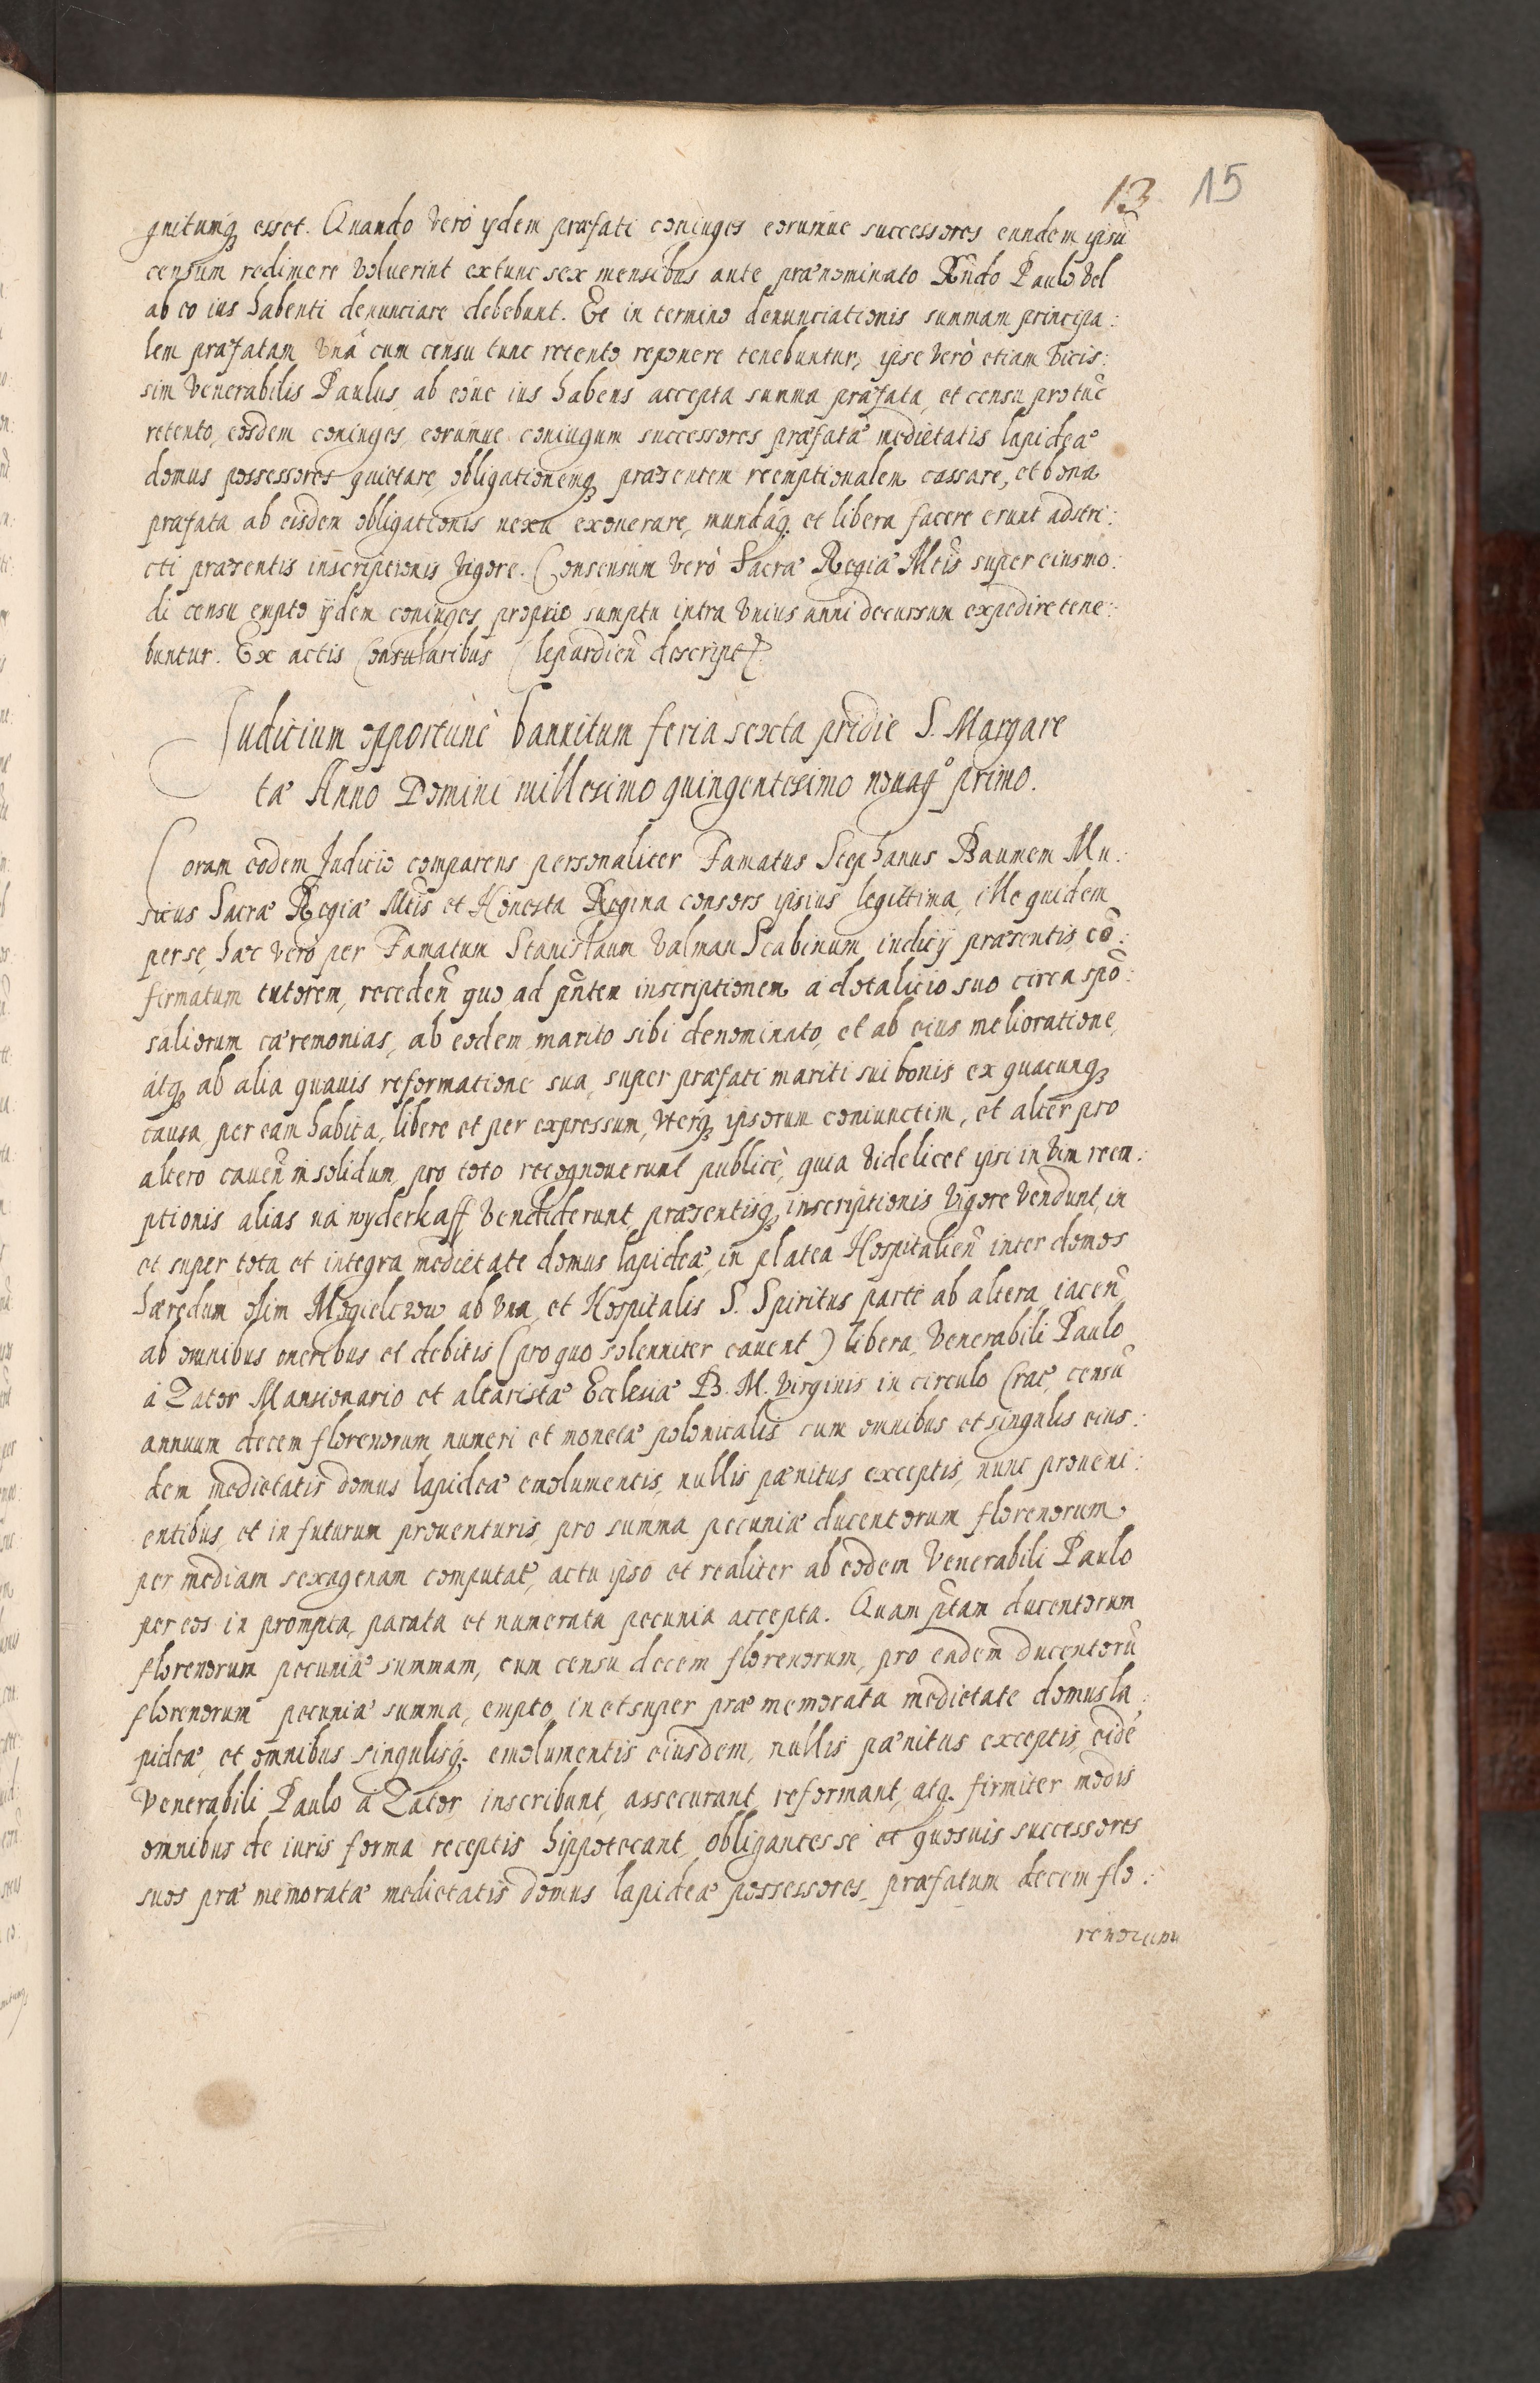 13 15
gnitumq́ue esset. Quando verò ijdem præfati coniuges eorumue successores eundem ipsũ
censum redimere voluerint extunc sex mensibus ante prænominato Rñdo Paulo vel
ab eo ius habenti denunciare debebunt. Et in termino denunciationis summam principa:
lem præfatam vnâ cum censu tunc retento reponere tenebuntur, ipse verò etiam vicis:
sim Venerabilis Paulus, ab eoúe ius habens accepta summa præfata, et censu protũc
retento, eosdem coniuges, eorumue coniugum successores præfatæ medietatis lapideæ
domus possessores quietare, obligationemq́ præsentem reemptionalem cassare, et bona
præfata ab eisdem obligationis nexu exonerare, mundáq́. et libera facere erunt adstri:
cti præsentis inscriptionis vigore. Consensum verò Sacræ Regiæ Mtis̃ super eiusmo:
di censu empto ijdem coniuges proprio sumptu intra vnius anni decursum expedire tene:
buntur. Ex actis Consularibus Clepardieñ descript.
Iudicium opportunè bannitum feria sexta pridie S. Margare
tæ Anno Domini millesimo quingentesimo nonagº primo.
Coram eodem Iudicio comparens personaliter Famatus Stephanus Baumem Mu:
sicus Sacræ Regiæ Mtis̃ et Honesta Regina consors ipsius legittima, ille quidem
per se, hæc verò per Famatum Stanislaum Valman Scabinum iudicij præsentis, cõ:
firmatum tutorem, recedeñ quo ad pñtem inscriptionem à dotalicio suo circa spõ:
saliorum cæremonias, ab eodem marito sibi denominato, et ab eius melioratione,
atq́ ab alia quauis reformatione sua, super præfati mariti sui bonis ex quacunq́
causa, per eam habita, libere et per expressum, vterq́ ipsorum coniunctim, et alter pro
altero caueñ in solidum, pro toto recognouerunt publicè, quia videlicet ipsi in vim reem:
ptionis alias na wyderkaff vendiderunt, præsentisq́ inscriptionis vigore vendunt, in
et super tota et integra medietate domus lapideæ, in platea Hospitalieñ inter domos
hæredum olim Mogielczow ab vna, et Hospitalis S. Spiritus parte ab altera, iaceñ
ab omnibus oneribus et debitis (pro quo solenniter cauent) libera, Venerabili Paulo
à Zator Mansionario et altaristæ Ecclesiæ B. M. Virginis in circulo Crac, censũ
annuum decem florenorum numeri et monetæ polonicalis cum omnibus et singulis eius:
dem medietatis domus lapideæ emolumentis, nullis pænitus exceptis, nunc proueni:
entibus, et in futurum prouenturis, pro summa pecuniæ ducentorum florenorum
per mediam sexagenam computat, actu ipso et realiter ab eodem Venerabili Paulo
per eos in prompta, parata et numerata pecunia accepta. Quam p̃tam ducentorum
florenorum pecuniæ summam, cum censu decem florenorum, pro eadem ducentorũ
florenorum pecuniæ summa, empto, in et super præmemorata medietate domus la:
pideæ, et omnibus singulisq́. emolumentis eiusdem, nullis pænitus exceptis, eidẽ
Venerabili Paulo à Zator inscribunt, assecurant, reformant, atq́. firmiter modis
omnibus de iuris forma receptis hippotecant, obligantes se et quosuis successores
suos præmemoratæ medietatis domus lapideæ possessores, præfatum decem flo:
renorum